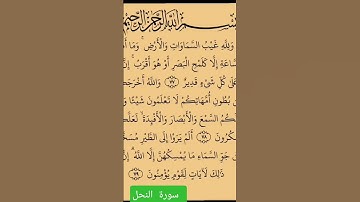 بِسْمِ اللَّهِ الرَّحْمَٰنِ الرَّحِيمِ
وَلِلَّهِ غَيْبُ السَّمَاوَاتِ وَالْأَرْضِ ۚ وَمَا أَ
سَّاعَةِ إِلَّا كَلَمْحِ الْبَصَرِ أَوْ هُوَ أَقْرَبُ ۚ إِنَّ
عَلَىٰ كُلِّ شَيْءٍ قَدِيرٌ ﴿٧٧﴾ وَاللَّهُ أَخْرَجَ
نْ بُطُونِ أُمَّهَاتِكُمْ لَا تَعْلَمُونَ شَيْئًا وَ
كُمُ السَّمْعَ وَالْأَبْصَارَ وَالْأَفْئِدَةَ ۙ لَعَلَّ
شْكُرُونَ ﴿٧٨﴾ أَلَمْ يَرَوْا إِلَى الطَّيْرِ مُسَخَّ
ي جَوِّ السَّمَاءِ مَا يُمْسِكُهُنَّ إِلَّا اللَّهُ ۗ إِنَّ
ذَٰلِكَ لَآيَاتٍ لِقَوْمٍ يُؤْمِنُونَ ﴿٧٩﴾
سورة النحل